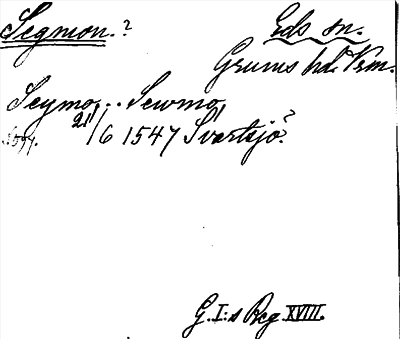 Segmon.?
Eds sn.
Grums hd. Vrm.
Seymo, .. Sewmo,
21/6 1547 Svartsjö?
G. I:s Reg XVIII.